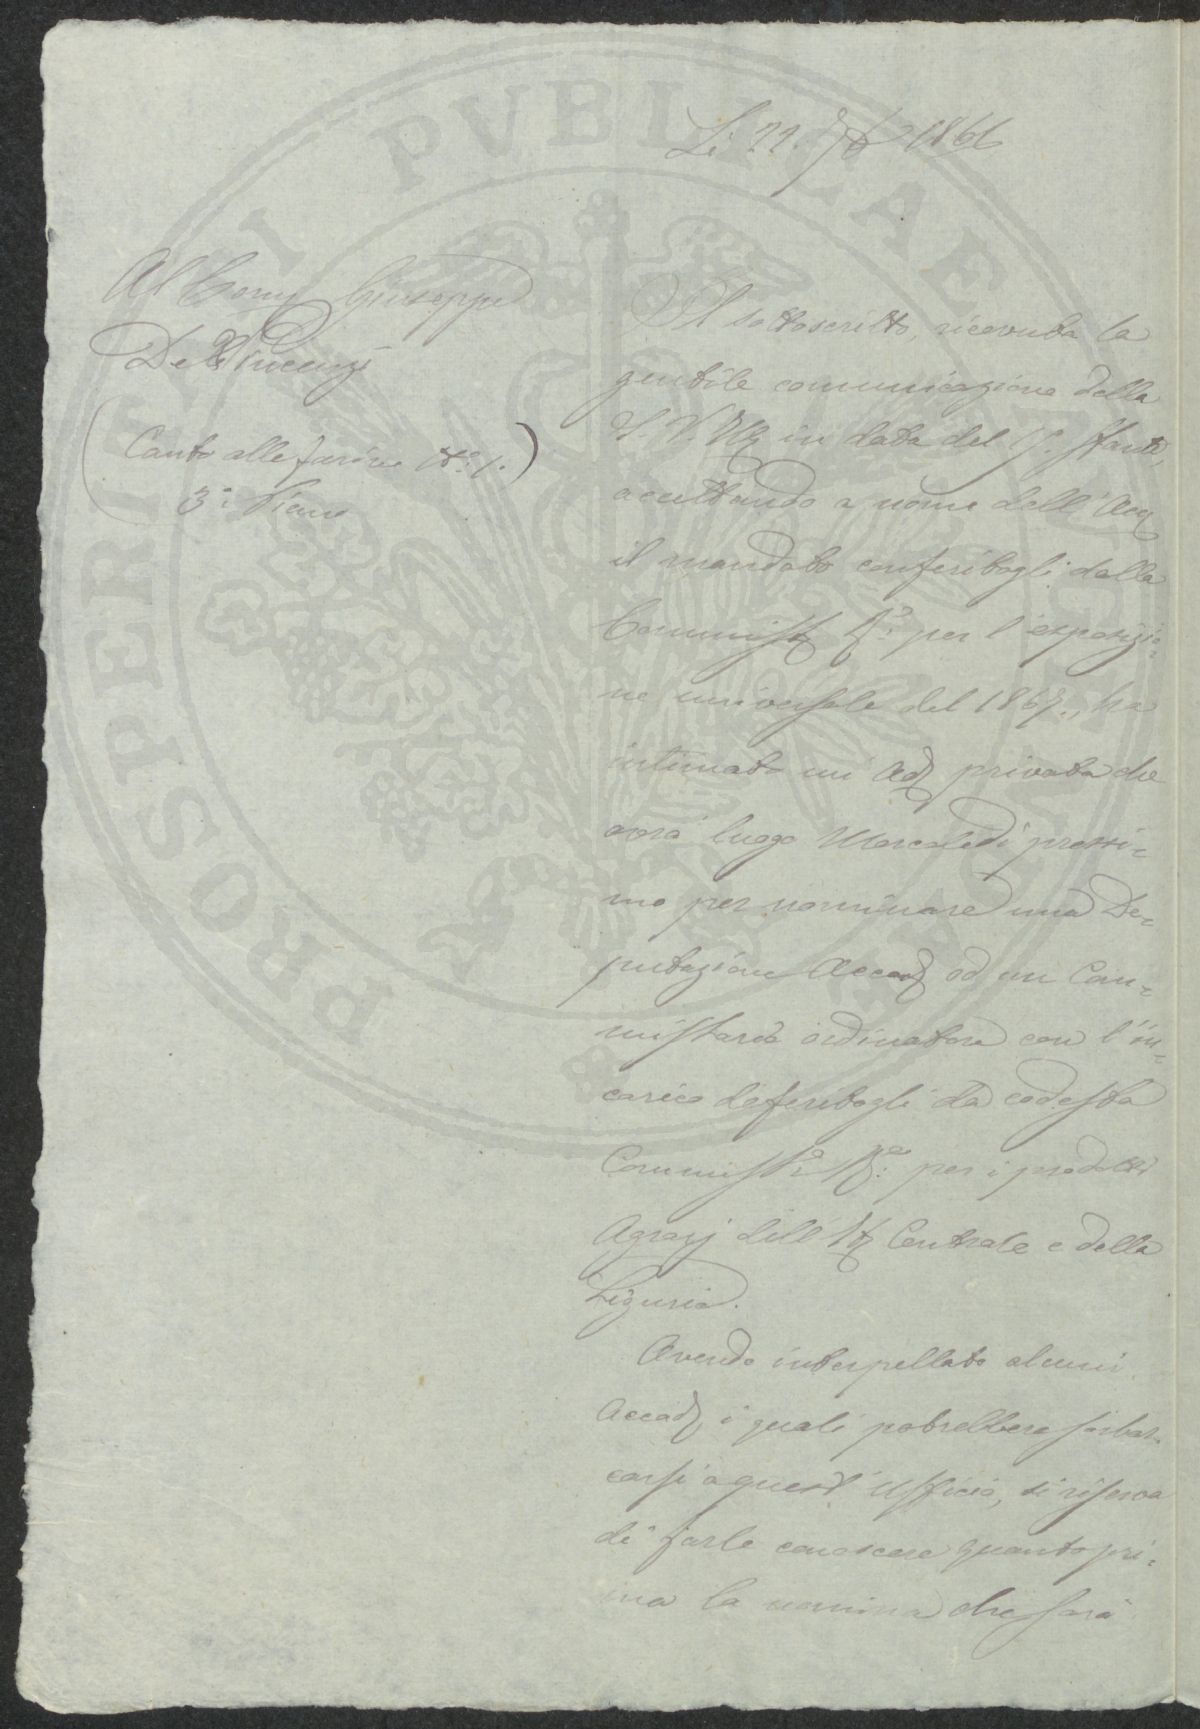 Li 11. 7bre 1866
Al Comm Giuseppe
De Vincenzi
(Canto alle farine N.º 1.)
3º: Piano
Il sottoscritto, ricevuta la
gentile comunicazione della
S. V. Ill in data del
accettando a nome dell' Acc
il mandato conferitogli dalla
Commiss R.ª: per l'esposizio-
ne universale del 1867., ha
intimato un' Ad privata che
avrà luogo Mercoledì prossi-
mo per nominare una De-
putazione Accad od un Com-
missario ordinatore con l'in-
carico deferitogli da codesta
Commiss.e R.ª: per i prodotti
Agrarj dell' It Centrale e della
Liguria.
Avendo interpellato alcuni
Accad i quali potrebbero sobbar-
carsi a quest' Ufficio, si riserva
di farle conoscere quanto pri-
ma la nomina che sarà
PROSPERITATI PVBLICAE AVGENDAE